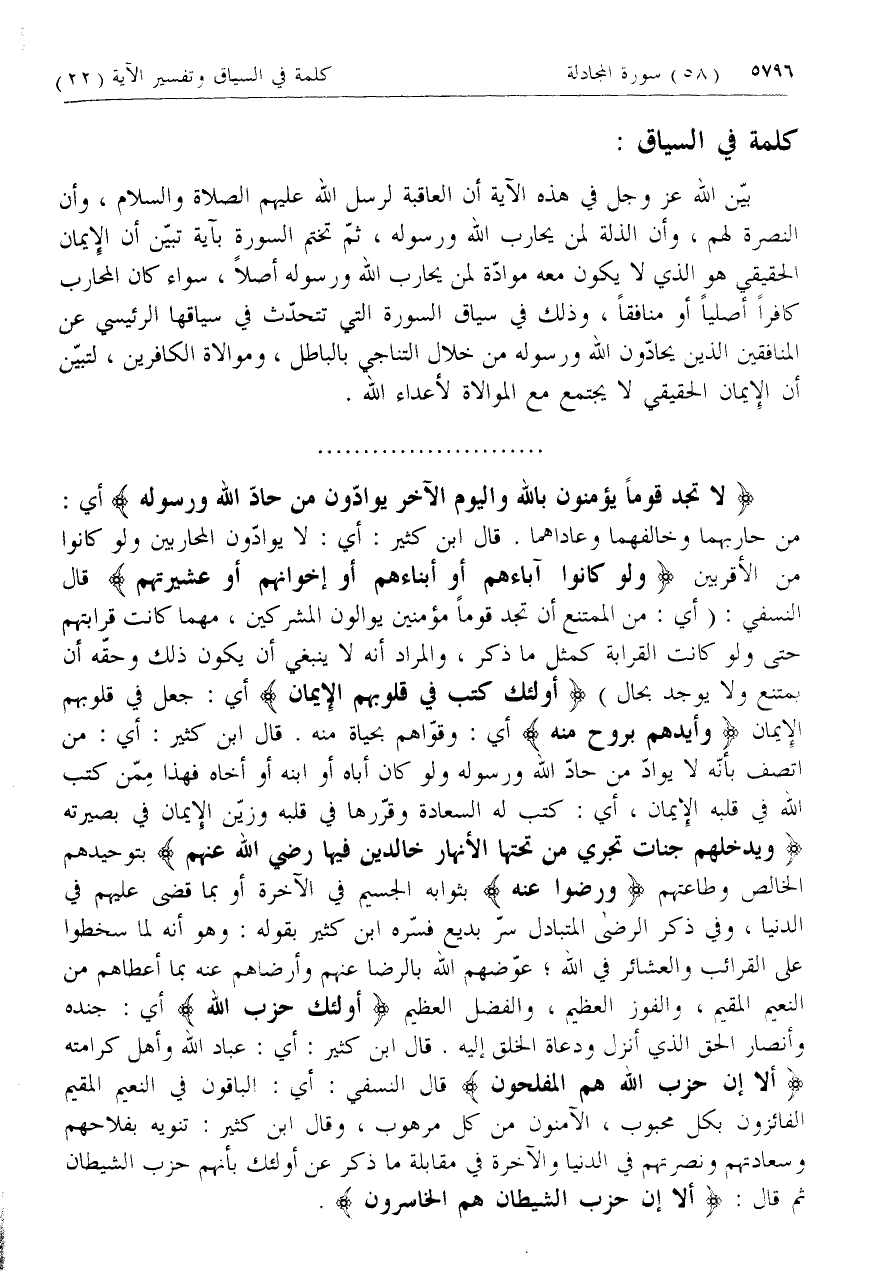 ٥٧٩٦ (٥٨) سورة المجادلة كلمة في السياق وتفسير الآية (٢٢)
كلمة في السياق :
بيّن الله عز وجل في هذه الآية أن العاقبة لرسل الله عليهم الصلاة والسلام ، وأن
النصرة لهم ، وأن الذلة لمن يحارب الله ورسوله ، ثمّ تختم السورة بآية تبيّن أن الإيمان
الحقيقي هو الذي لا يكون معه موادّة لمن يحارب الله ورسوله أصلاً ، سواء كان المحارب
كافراً أصلياً أو منافقاً ، وذلك في سياق السورة التي تتحدّث في سياقها الرئيسي عن
المنافقين الذين يحادّون الله ورسوله من خلال التناجي بالباطل ، وموالاة الكافرين ، لتبيّن
أن الإيمان الحقيقي لا يجتمع مع الموالاة لأعداء الله .
.........................
﴿ لا تجد قوماً يؤمنون بالله واليوم الآخر يوادّون من حادّ الله ورسوله ﴾ أي :
من حاربهما وخالفهما وعاداهما . قال ابن كثير : أي : لا يوادّون المحاربين ولو كانوا
من الأقربين ﴿ ولو كانوا آباءهم أو أبناءهم أو إخوانهم أو عشيرتهم ﴾ قال
النسفي : ( أي : من الممتنع أن تجد قوماً مؤمنين يوالون المشركين ، مهما كانت قرابتهم
حتى ولو كانت القرابة كمثل ما ذكر ، والمراد أنه لا ينبغي أن يكون ذلك وحقّه أن
يمتنع ولا يوجد بحال ) ﴿ أولئك كتب في قلوبهم الإيمان ﴾ أي : جعل في قلوبهم
الإيمان ﴿ وأيدهم بروح منه ﴾ أي : وقوّاهم بحياة منه . قال ابن كثير : أي : من
اتصف بأنّه لا يوادّ من حادّ الله ورسوله ولو كان أباه أو ابنه أو أخاه فهذا مِمّن كتب
الله في قلبه الإيمان ، أي : كتب له السعادة وقرّرها في قلبه وزيّن الإيمان في بصيرته
﴿ ويدخلهم جنات تجري من تحتها الأنهار خالدين فيها رضي الله عنهم ﴾ بتوحيدهم
الخالص وطاعتهم ﴿ ورضوا عنه ﴾ بثوابه الجسيم في الآخرة أو بما قضى عليهم في
الدنيا ، وفي ذكر الرضىٰ المتبادل سرّ بديع فسّره ابن كثير بقوله : وهو أنه لما سخطوا
على القرائب والعشائر في الله ؛ عوّضهم الله بالرضا عنهم وأرضاهم عنه بما أعطاهم من
النعيم المقيم ، والفوز العظيم ، والفضل العظيم ﴿ أولئك حزب الله ﴾ أي : جنده
وأنصار الحق الذي أنزل ودعاة الخلق إليه . قال ابن كثير : أي : عباد الله وأهل كرامته
﴿ ألا إن حزب الله هم المفلحون ﴾ قال النسفي : أي : الباقون في النعيم المقيم
الفائزون بكل محبوب ، الآمنون من كل مرهوب ، وقال ابن كثير : تنويه بفلاحهم
وسعادتهم ونصرتهم في الدنيا والآخرة في مقابلة ما ذكر عن أولئك بأنهم حزب الشيطان
ثم قال : ﴿ ألا إن حزب الشيطان هم الخاسرون ﴾ .